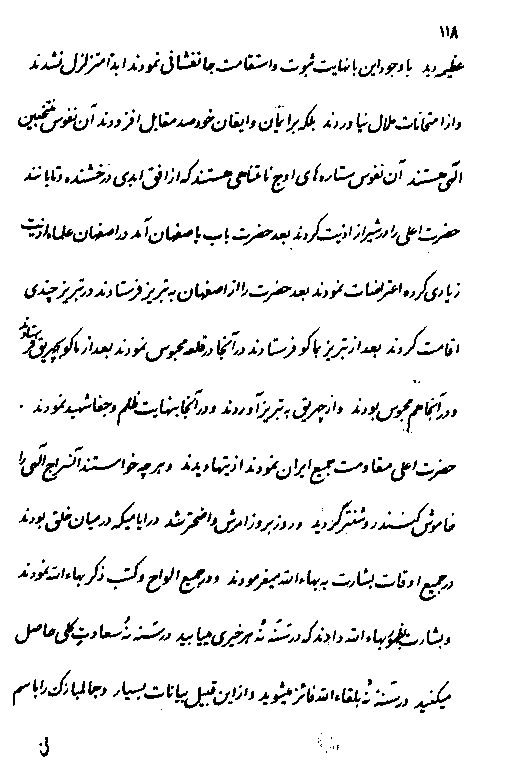 ۱۱۸
عظیمه دید با وجود این با نهایت ثبوت و استقامت جانفشانی نمودند ابداً متزلزل نشدند
و از امتحانات ملال نیاوردند بلکه بر ایمان و ایقان خود صد مقابل افزودند آن نفوس منتخبین
الهی هستند آن نفوس ستاره های اوج نامتناهی هستند که از افق ابدی درخشنده و تابانند
حضرت اعلی را در شیراز اذیت کردند بعد حضرت باب باصفهان آمد در اصفهان علماء اذیت
زیادی کرده اعتراضات نمودند بعد حضرت را از اصفهان به تبریز فرستادند در تبریز چندی
اقامت کردند بعد از تبریز بماکو فرستادند در آنجا در قلعه محبوس نمودند بعد از ماکو بچهریق فرستادند
و در آنجا هم محبوس بودند و از چهریق به تبریز آوردند و در آنجا بنهایت ظلم و جفا شهید نمودند .
حضرت اعلی مقاومت جمیع ایران نمودند اذیتها دیدند و هر چه خواستند آن سراج الهی را
خاموش کنند روشنتر گردید و روز بروز امرش واضحتر شد در ایامیکه در میان خلق بودند
در جمیع اوقات بشارت به بهاءالله میفرمودند و در جمیع الواح و کتب ذکر بهاءالله نمودند
و بشارت بظهور بهاءالله دادند که در سنه نه هر خیری مییابید در سنه نه سعادت کلی حاصل
میکنید در سنه نه بلقاءالله فائز میشوید و از این قبیل بیانات بسیار و جمال مبارک را باسم